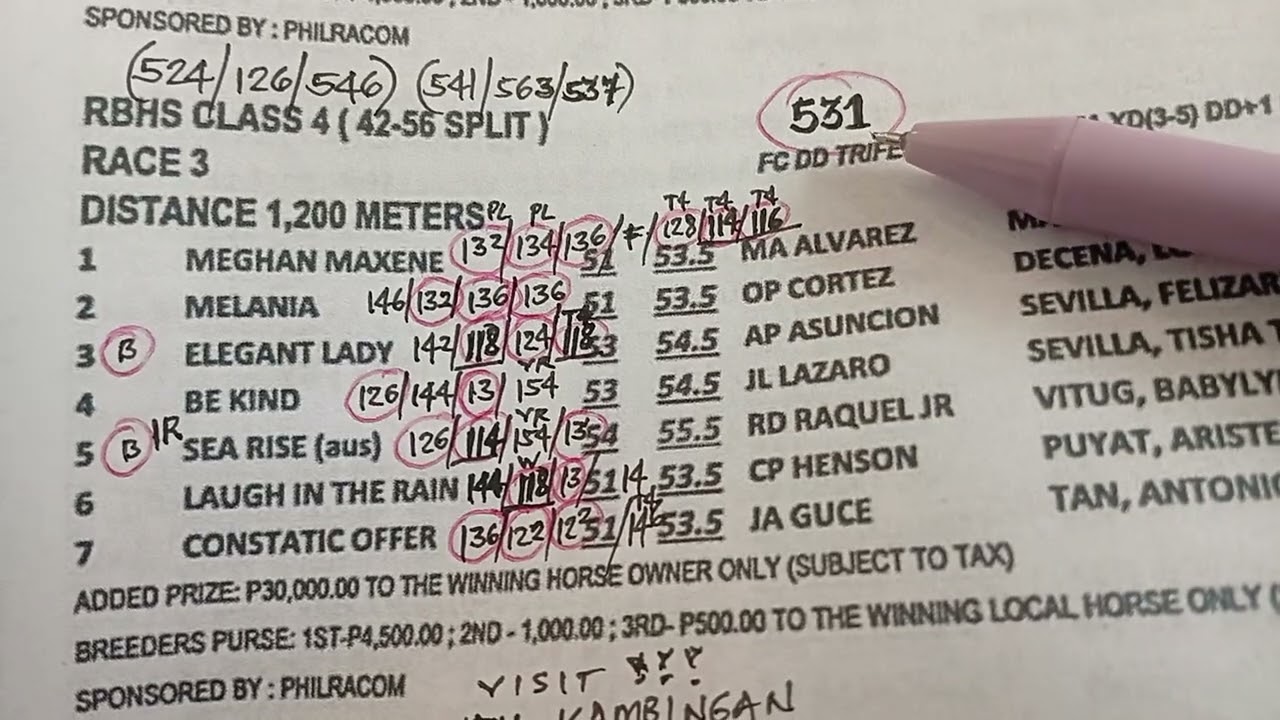 SPONSORED BY : PHILRACOM
(524/126/546) (541/563/537)
RBHS CLASS 4 ( 42-56 SPLIT ) 531 YD(3-5) DD+1
RACE 3 FC DD TRIFE
DISTANCE 1,200 METERS PL PL T4 T4 T4
1 MEGHAN MAXENE 132/134/136/≠/128/114/116 51 53.5 MA ALVAREZ
2 MELANIA 146/132/136/136 51 53.5 OP CORTEZ DECENA,
3 B ELEGANT LADY 142/118/124/118 53 54.5 AP ASUNCION SEVILLA, FELIZAR
YR
4 BE KIND 126/144/13/154 53 54.5 JL LAZARO SEVILLA, TISHA T
YR
5 B IR SEA RISE (aus) 126/114/154/13 54 55.5 RD RAQUEL JR VITUG, BABYLY
W
6 LAUGH IN THE RAIN 144/118/13/ 51 14 53.5 CP HENSON PUYAT, ARISTE
7 CONSTATIC OFFER 136/122/122 51 /14 53.5 JA GUCE TAN, ANTONIO
ADDED PRIZE: P30,000.00 TO THE WINNING HORSE OWNER ONLY (SUBJECT TO TAX)
BREEDERS PURSE: 1ST-P4,500.00 ; 2ND - 1,000.00 ; 3RD- P500.00 TO THE WINNING LOCAL HORSE ONLY (
SPONSORED BY : PHILRACOM
VISIT
KAMBINGAN